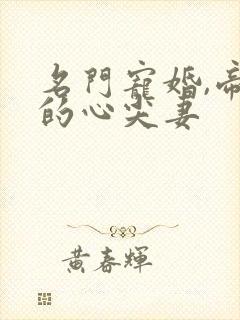 名門寵婚,帝
的心尖妻
黃春輝